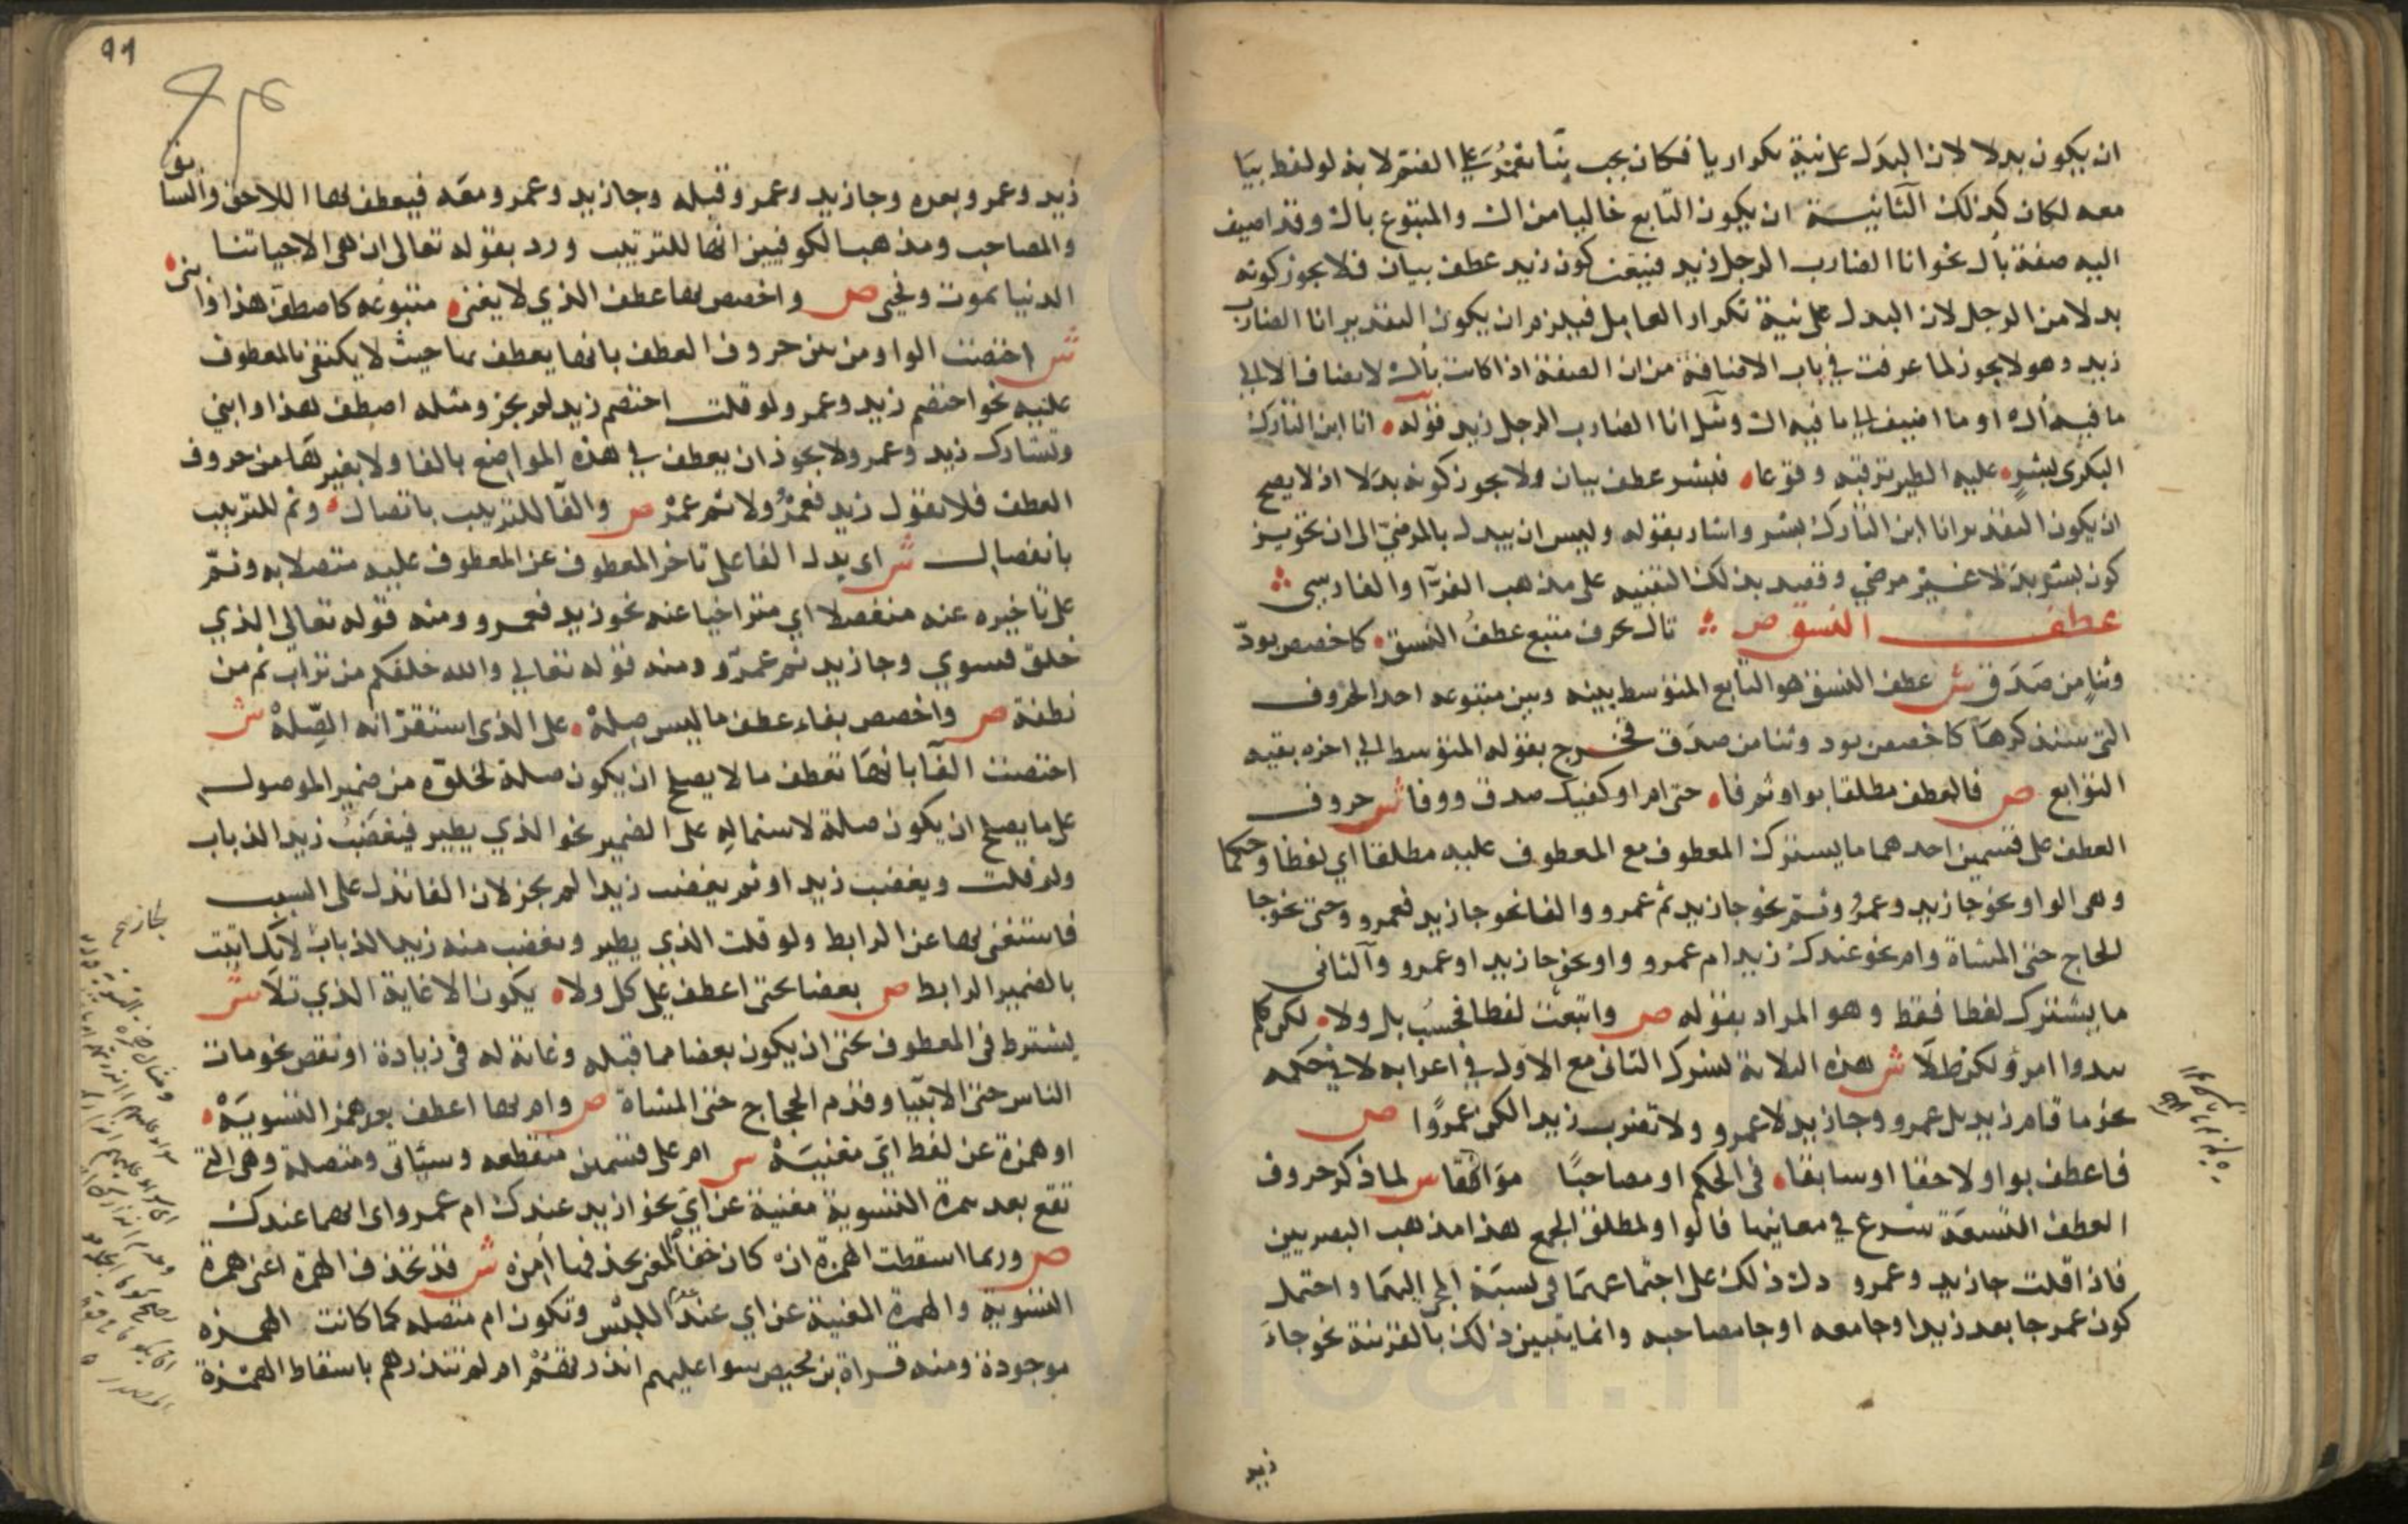 ان يكون بدلا لان البدل على نية تكرار يا فكان يجب بناء يعمر على الضم لانه لو لفظ بيا
معه لكان كذلك الثانية ان يكون التابع خاليا من ال والمتبوع بال وقد اضيف
اليه صفة بال نحو انا الضارب الرجل زيد فيتعين كون زيد عطف بيان فلا يجوز كونه
بدلا من الرجل لان البدل على نية تكرار العامل فيلزم ان يكون التقدير انا الضارب
زيد وهو لا يجوز لما عرفت في باب الاضافة من ان الصفة اذا كانت بال لا تضاف الا الى
ما فيه ال او ما اضيف الى ما فيه ال ومثل انا الضارب الرجل زيد قوله انا ابن التارك
البكرى بشر عليه الطير ترقبه وقوعا فبشر عطف بيان ولا يجوز كونه بدلا اذ لا يصح
ان يكون التقدير انا ابن التارك بشر واشار بقوله وليس ان يبدل بالمرضي الى ان تجويز
كون بشر بدلا غير مرضي وقصد بذلك التنبيه على مذهب الفرا والفارسي
عطف النسق ص تال بحرف متبع عطف النسق كاخصص بود
وثنا من صدق ش عطف النسق هو التابع المتوسط بينه وبين متبوعه احد الحروف
التي سنذكرها كاخصص بود وثنا من صدق فخرج بقوله المتوسط الى اخره بقيه
التوابع ص فالعطف مطلقا بواو ثم فا حتى ام او كفيك صدق ووفا ش حروف
العطف على قسمين احدهما ما يشترك المعطوف مع المعطوف عليه مطلقا اي لفظا وحكما
وهى الواو نحو جا زيد وعمرو وثم نحو جا زيد ثم عمرو والفا نحو جا زيد فعمرو وحتى نحو جا
الحاج حتى المشاة وام نحو عندك زيد ام عمرو واو نحو جا زيد او عمرو والثانى
ما يشترك لفظا فقط وهو المراد بقوله ص واتبعت لفظا فحسب بل ولا لكن كلم
يبدوا امرؤ لكن طلا ش هذه الثلاثة تشرك الثانى مع الاول في اعرابه لا في حكمه
نحو ما قام زيد بل عمرو وجا زيد لا عمرو ولا تضرب زيدا لكن عمروا ص
فاعطف بواو لاحقا او سابقا في الحكم او مصاحبا موافقا ش لما ذكر حروف
العطف التسعة شرع في معانيها فالواو لمطلق الجمع هذا مذهب البصريين
فاذا قلت جا زيد وعمرو دل ذلك على اجتماعهما في نسبة المجى اليهما واحتمل
كون عمر جا بعد زيد او جا معه او جا مصاحبه وانما يتبين ذلك بالقرينة نحو جاء
زيد
٩٩
زيد وعمرو بعده وجا زيد وعمرو قبله وجا زيد وعمرو معه فيعطف بها اللاحق والسابق
والمصاحب ومذهب الكوفيين انها للترتيب ورد بقوله تعالى ان هى الا حياتنا
الدنيا نموت ونحيى ص واخصص بها عطف الذي لا يغني متبوعه كاصطف هذا وابنى
ش اختصت الواو من بين حروف العطف بانها يعطف بها حيث لا يكتفى بالمعطوف
عليه نحو اختصم زيد وعمرو ولو قلت اختصم زيد لم يجز ومثله اصطف هذا وابني
وتشارك زيد وعمرو ولا يجوز ان يعطف في هذه المواضع بالفا ولا بغيرها من حروف
العطف فلا تقول زيد فعمرو ولا ثم عمرو ص والفا للترتيب باتصال وثم للترتيب
بانفصال ش اى يدل الفا على تاخر المعطوف عن المعطوف عليه متصلا به وثم
على تاخيره عنه منفصلا اي متراخيا عنه نحو زيد فعمرو ومنه قوله تعالى الذي
خلق فسوي وجا زيد ثم عمرو ومنه قوله تعالى والله خلقكم من تراب ثم من
نطفة ص واخصص بفاء عطف ما ليس صلة على الذى استقر انه الصلة ش
اختصت الفا بانها تعطف ما لا يصلح ان يكون صلة لخلوه من ضمير الموصول
على ما يصلح ان يكون صلة لاشتماله على الضمير نحو الذي يطير فيغضب زيد الذباب
ولو قلت ويغضب زيد او ثم يغضب زيد لم يجز لان الفا تدل على السبب
فاستغنى بها عن الرابط ولو قلت الذي يطير ويغضب منه زيد الذباب لانك اتيت
بالضمير الرابط ص بعضا بحتى اعطف على كل ولا يكون الا غاية الذي تلا ش
يشترط فى المعطوف بحتى ان يكون بعضا مما قبله وغاية له فى زيادة او نقص نحو مات
الناس حتى الانبيا وقدم الحجاج حتى المشاة ص وام بها اعطف بعد همز التسوية
او همزة عن لفظ اي مغنية ش ام على قسمين منقطعه وسيأتى ومتصلة وهى التى
تقع بعد همزة التسوية مغنية عن اي نحو ازيد عندك ام عمرو اى ايهما عندك
ص وربما اسقطت الهمزة ان كان خفا المعنى بحذفها امن ش قد تحذف الهمزة اعنى همزة
التسوية والهمزة المغنية عن اي عند عدم اللبس وتكون ام متصله كما كانت الهمزه
موجودة ومنه قراة بن محيص سوا عليهم انذرتهم ام لم تنذرهم باسقاط الهمزة